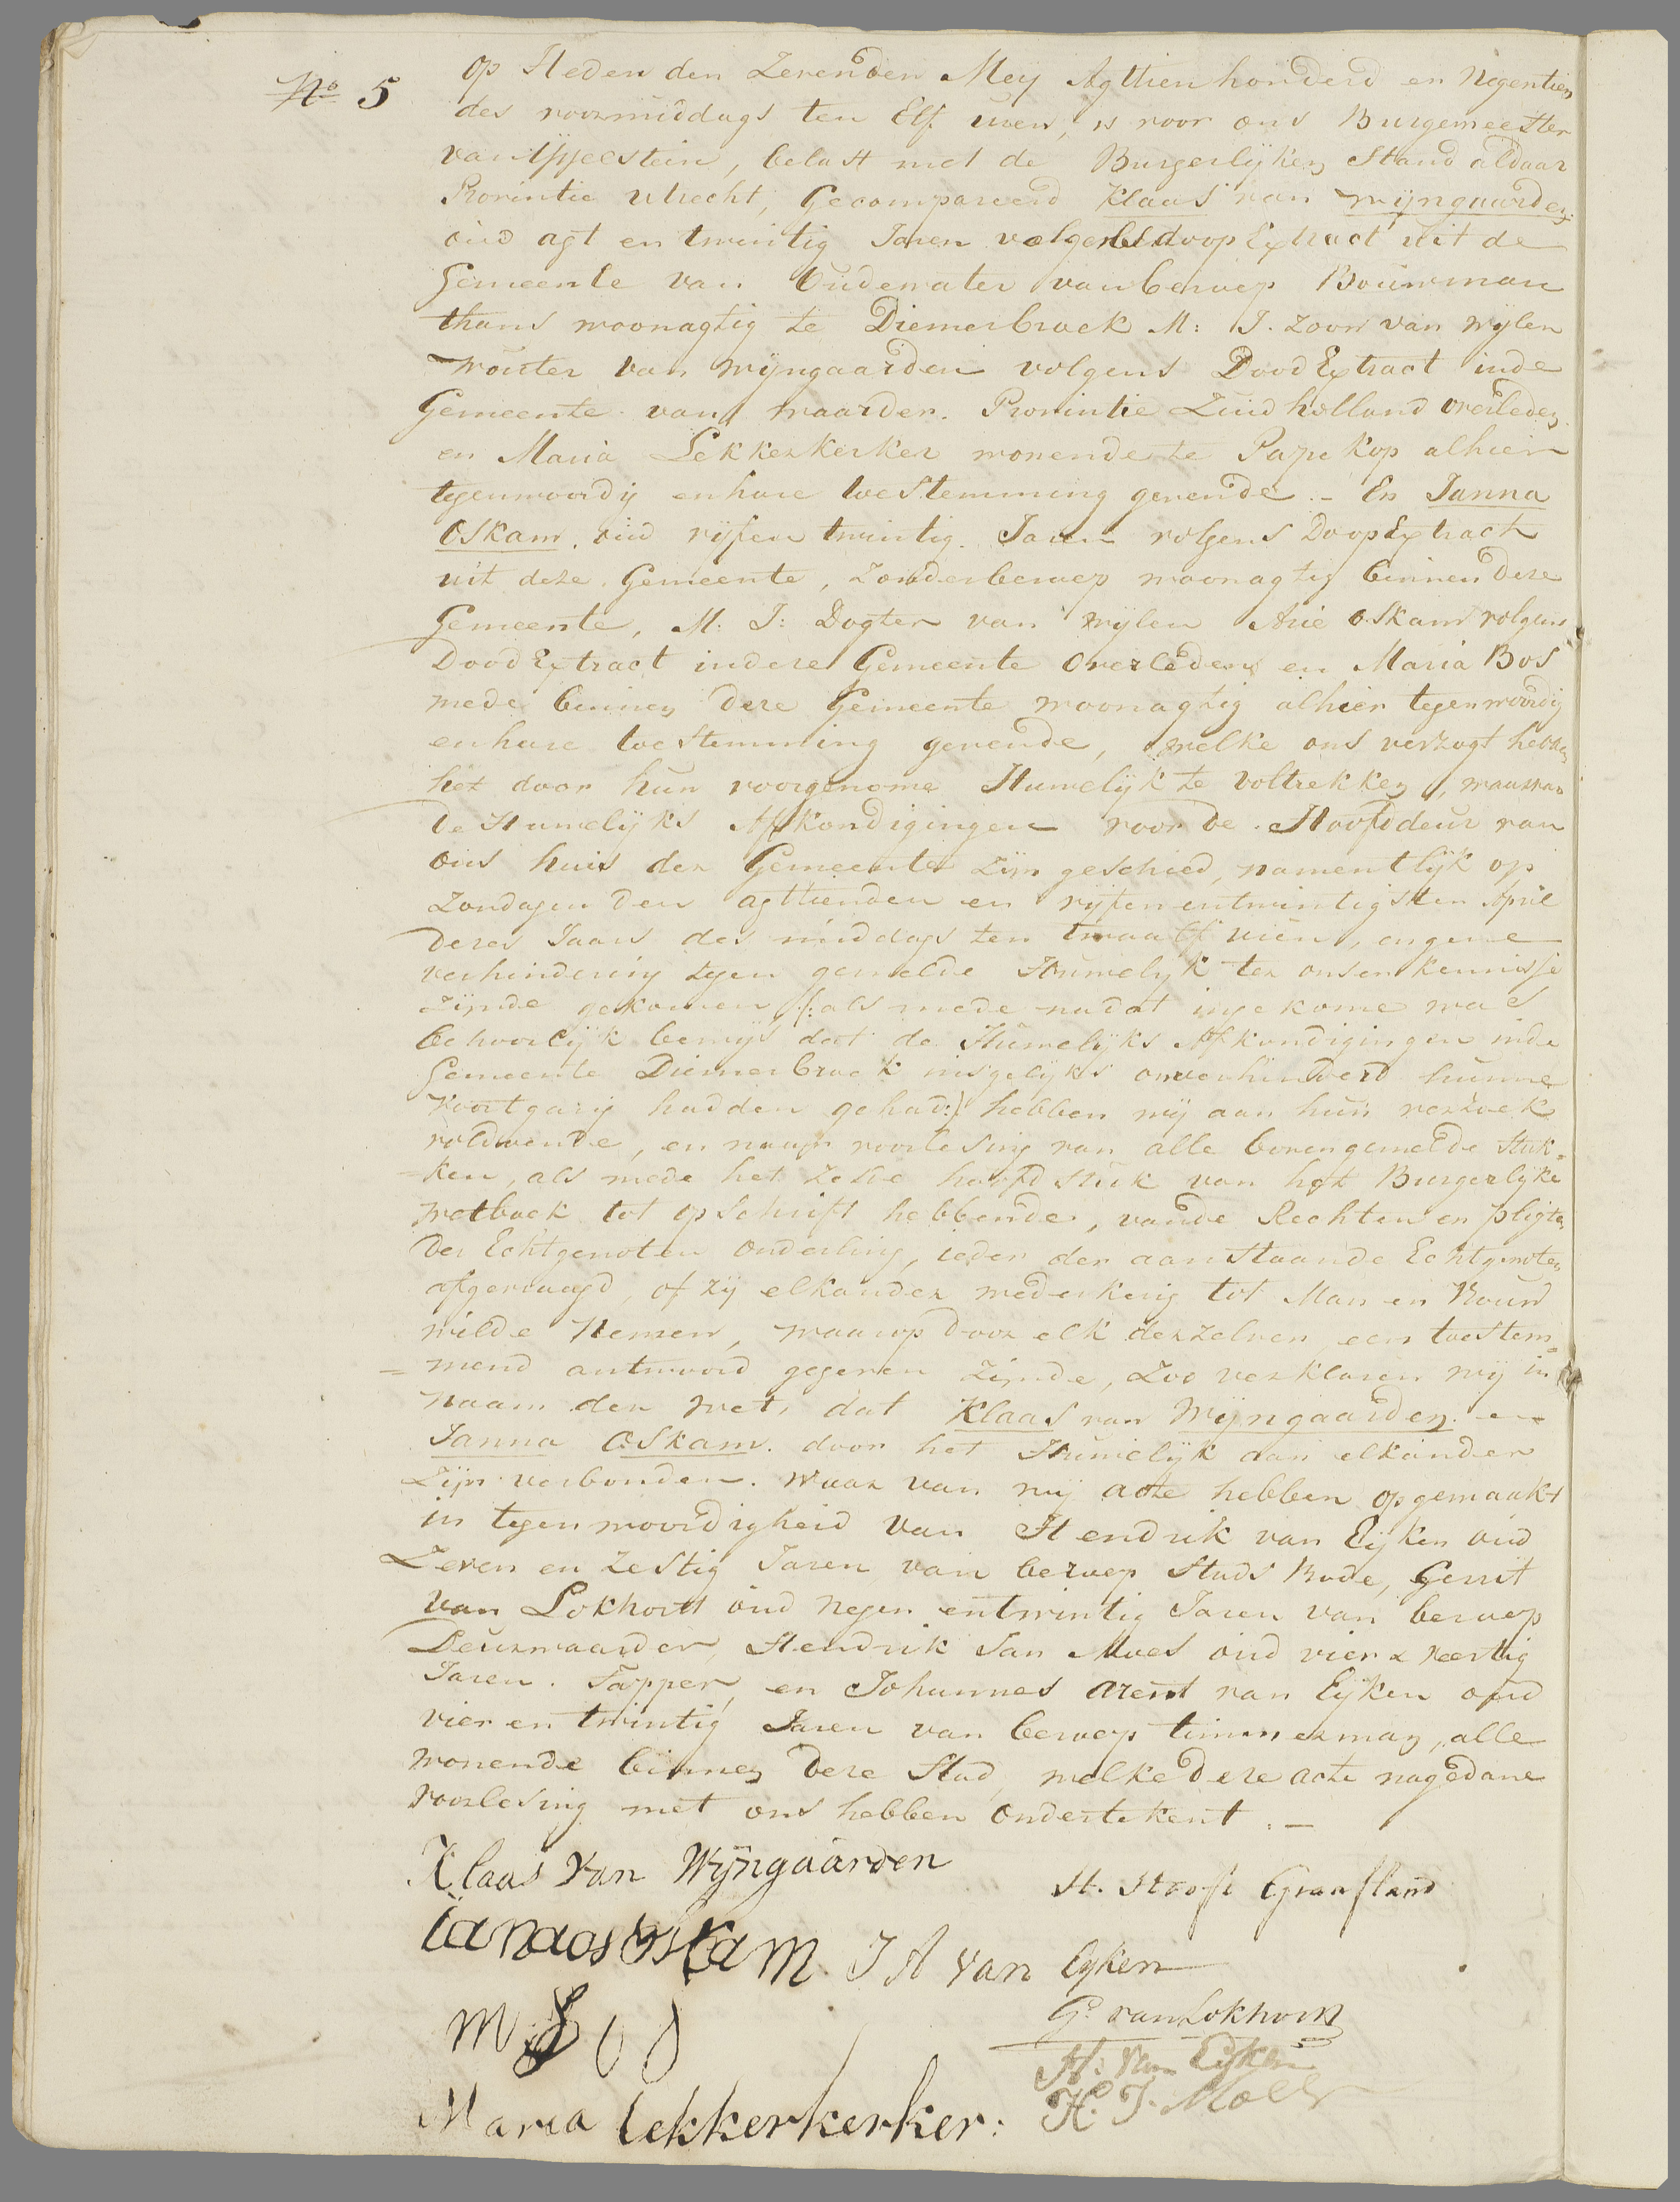 No 5
Op Heden den Zevenden Meij Agttien honderd en Negentien
des voormiddags ten Elf uuren, is voor ons Burgemeester
van IJsselstein, belast met de Burgerlijken Stand aldaar
Provintie Utrecht, Gecompareerd Klaas van Wijngaarden
oud agt en twintig Jaren volgens doop Extract uit de
Gemeente van Oudewater van beroep Bouwman
thans woonagtig te Diemerbroek M: J. zoon van wijlen
Wouter van Wijngaarden volgens Dood Extract inde
Gemeente van Waarder. Provintie Zuid holland Overleden
en Maria Lekkerkerker wonende te Papekop alhier
tegenwoordig en hare toestemming gevende. - En Janna
Oskam, oud vijfen twintig. Jaren volgens Doop Extract
uit deze Gemeente, Zonder beroep woonagtig binnen deze
Gemeente, M: J: Dogter van wijlen Arie Oskam volgens
Dood Extract in deze Gemeente Overleden en Maria Bos
mede binnen deze Gemeente woonagtig alhier tegenwoordig
en hare toestemming gevende, welke ons verzogt hebben
het door hun voorgenome Huwelijk te voltrekken, waarvan
de Huwelijks Afkondigingen voor de Hoofddeur van
ons huis der Gemeente zijn geschied, namentlijk op
Zondagen den agttienden en vijfenentwintigsten April
dezes Jaars des middags ten twaalf uuren, en geene
verhindering tegen gemelde Huwelijk ter onsen kennisse
zijnde gekomen /: als mede nadat ingekome was
behoorlijk bewijs dat de Huwelijks Afkondigingen inde
Gemeente Diemerbroek insgelijks onverhinderd hunne
Voortgang hadden gehad:/ hebben wij aan hun verzoek
voldoende, en naar voorlesing van alle bovengemelde Stuk-
-ken, als mede het Zesde hoofdstuk van het Burgerlijke
Wetboek tot opschrift hebbende, van de Rechten en pligten
der Echtgenoten onderling, ieder der aanstaande Echtgenoten
afgevraagd, of zij elkander wederkerig tot Man en Vrouw
wilde Nemen, waarop door elk derzelven een toestem=
=mend antwoord gegeven Zijnde, Zoo verklaren wij in
Naam der Wet, dat Klaas van Wijngaarden en
Janna Oskam. door het Huwelijk aan elkander
Zijn verbonden. Waar van wij acte hebben opgemaakt
in tegenwoordigheid van Hendrik van Eijken oud
Zeven en Zestig Jaren van beroep Stads Bode, Gerrit
van Lokhorst oud Negen entwintig Jaren van beroep
Deurwaarder, Hendrik Jan Moes oud vier & veertig
Jaren. Tapper, en Johannes Arent van Eijken oud
vier en twintig Jaren van beroep timmerman, alle
Wonende binnen deze Stad, welke deze acte nagedane
voorlesing met ons hebben Ondertekent. -
Klaas Van Wijngaarden
H. Strafs Graafland
Janaos Oskam.
J A van Eyken
G. van Lokhorst
M Bos
H: van Eijken
H. J. Moes
Maria Lekkerkerker: